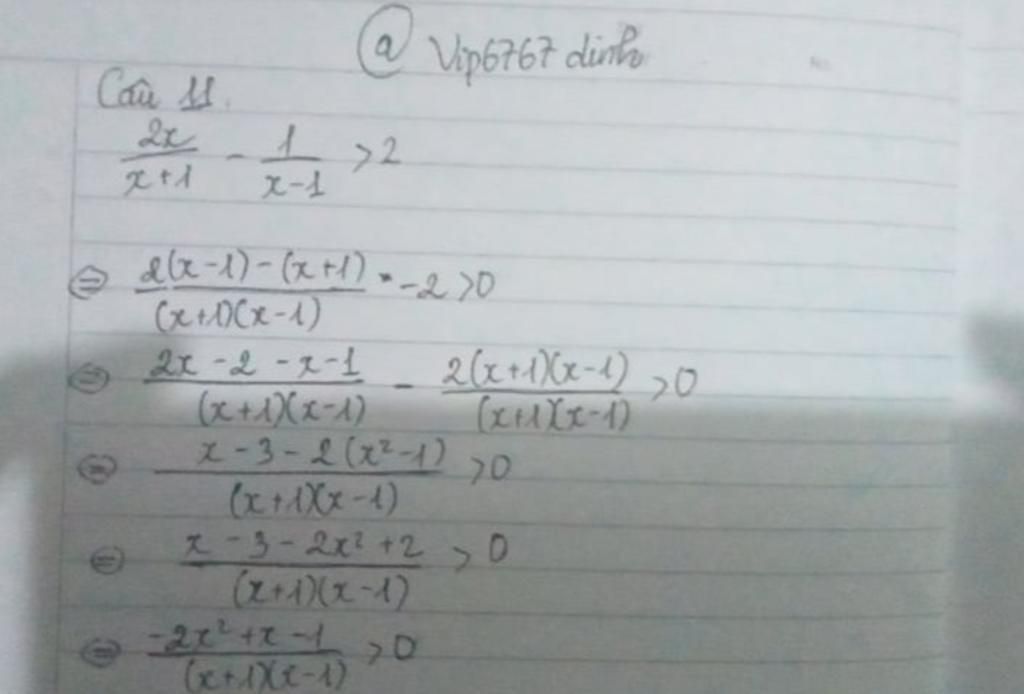 @ Vip6767 dinh
Câu 11.
2x/(x+1) - 1/(x-1) > 2
⇔ (2(x-1)-(x+1))/((x+1)(x-1)) - 2 > 0
⇔ (2x-2-x-1)/((x+1)(x-1)) - (2(x+1)(x-1))/((x+1)(x-1)) > 0
⇔ (x-3-2(x²-1))/((x+1)(x-1)) > 0
⇔ (x-3-2x²+2)/((x+1)(x-1)) > 0
⇔ (-2x²+x-1)/((x+1)(x-1)) > 0